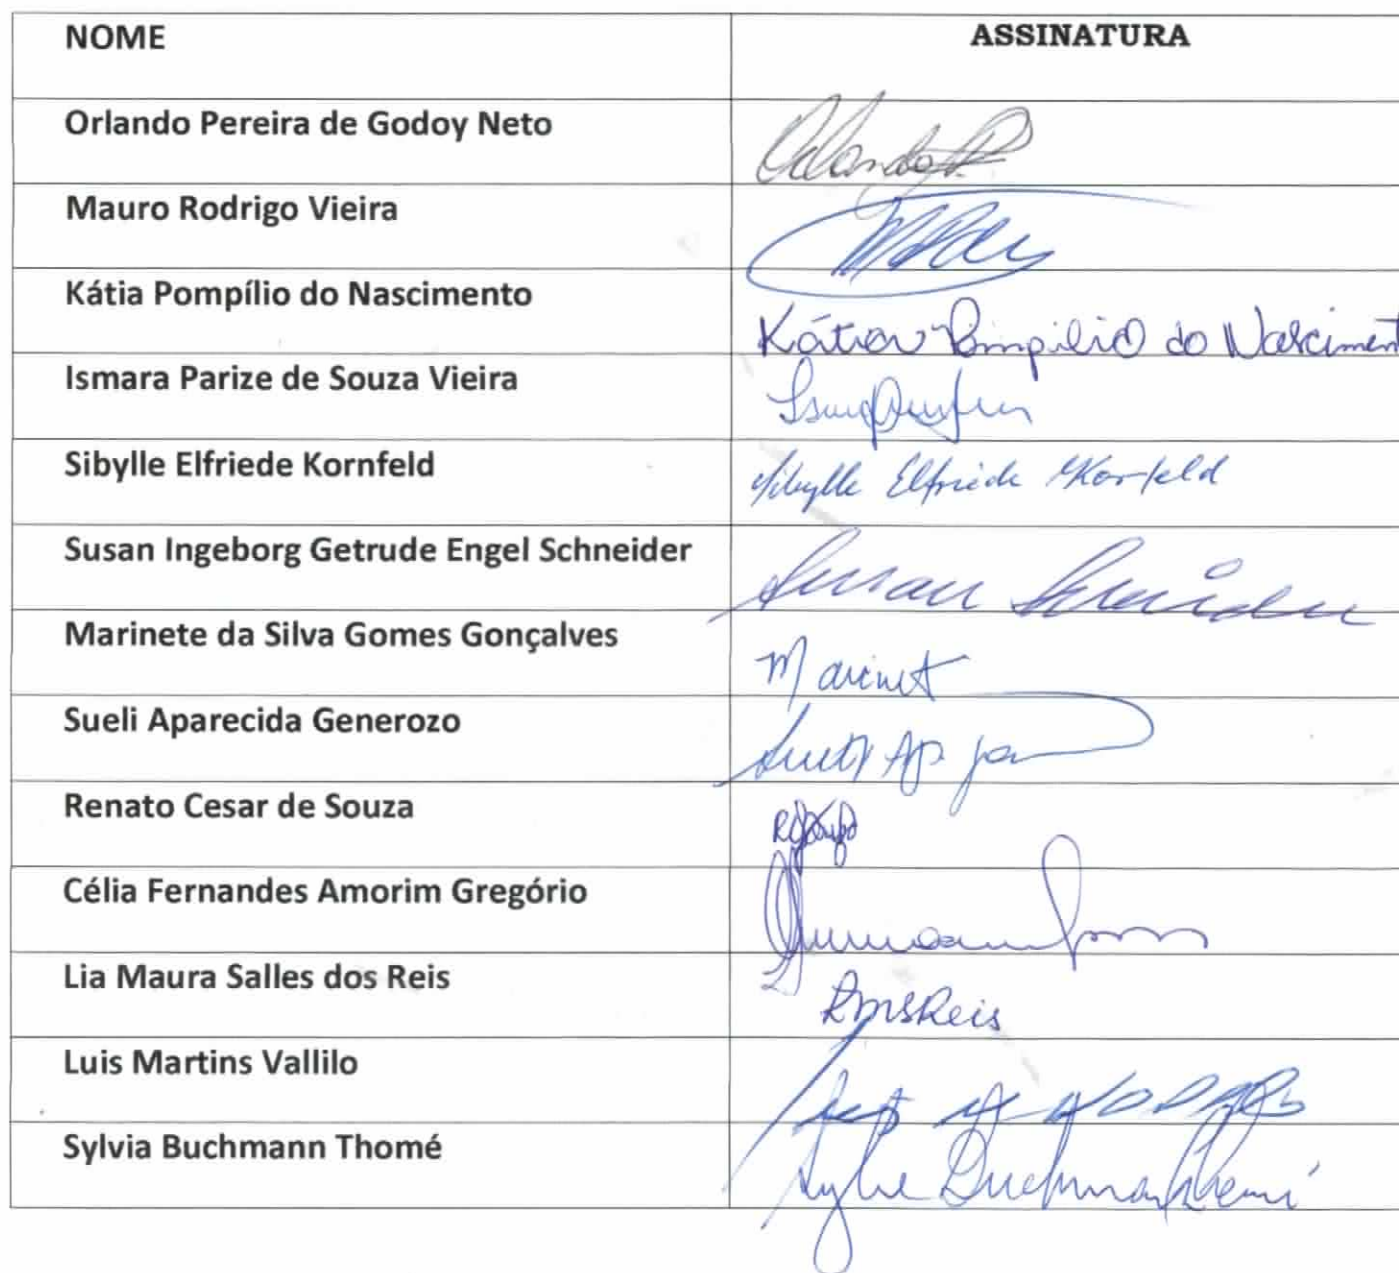 NOME ASSINATURA
Orlando Pereira de Godoy Neto Orlando
Mauro Rodrigo Vieira
Kátia Pompílio do Nascimento Kátia Pompílio do Nasciment
Ismara Parize de Souza Vieira
Sibylle Elfriede Kornfeld Sibylle Elfriede Kornfeld
Susan Ingeborg Getrude Engel Schneider Susan Schneider
Marinete da Silva Gomes Gonçalves Marinet
Sueli Aparecida Generozo Sueli Ap.
Renato Cesar de Souza
Célia Fernandes Amorim Gregório
Lia Maura Salles dos Reis LMSReis
Luis Martins Vallilo
Sylvia Buchmann Thomé Sylvia Buchmann Thomé